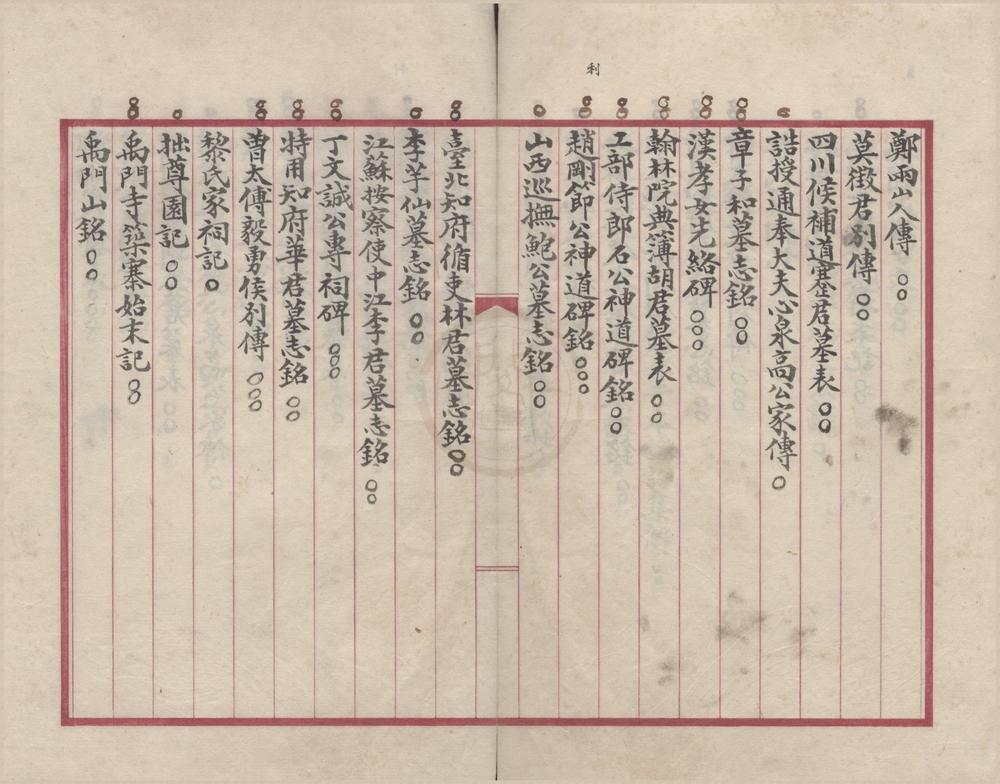 利
鄭兩山人傳 ○○
莫徵君別傳 ○○
四川候補道蹇君墓表 ○○
誥授通奉大夫心泉高公家傳 ○
章子和墓志銘 ○○
漢孝女先絡碑 ○○○
翰林院典簿胡君墓表 ○○
工部侍郎石公神道碑銘 ○○
趙剛節公神道碑銘 ○○○
山西巡撫鮑公墓志銘 ○○
臺北知府循吏林君墓志銘 ○○
李芋仙墓志銘 ○○
江蘇按察使中江李君墓志銘 ○○
丁文誠公專祠碑 ○○○
特用知府華君墓志銘 ○○
曾太傅毅勇侯別傳 ○○○
黎氏家祠記 ○
拙尊園記 ○○
禹門寺築寨始末記 ○○
禹門山銘 ○○